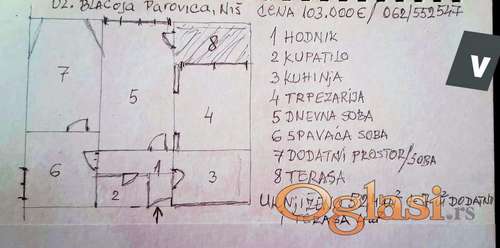 UL. BLAGOJA PAROVIĆA, NIŠ CENA 103.000€/ 062/552547
1 HODNIK
2 KUPATILO
3 KUHINJA
4 TRPEZARIJA
5 DNEVNA SOBA
6 SPAVAĆA SOBA
7 DODATNI PROSTOR/SOBA
8 TERASA
DODATNI
8
7
5
4
6
1
2
3
V
Oglasi.rs